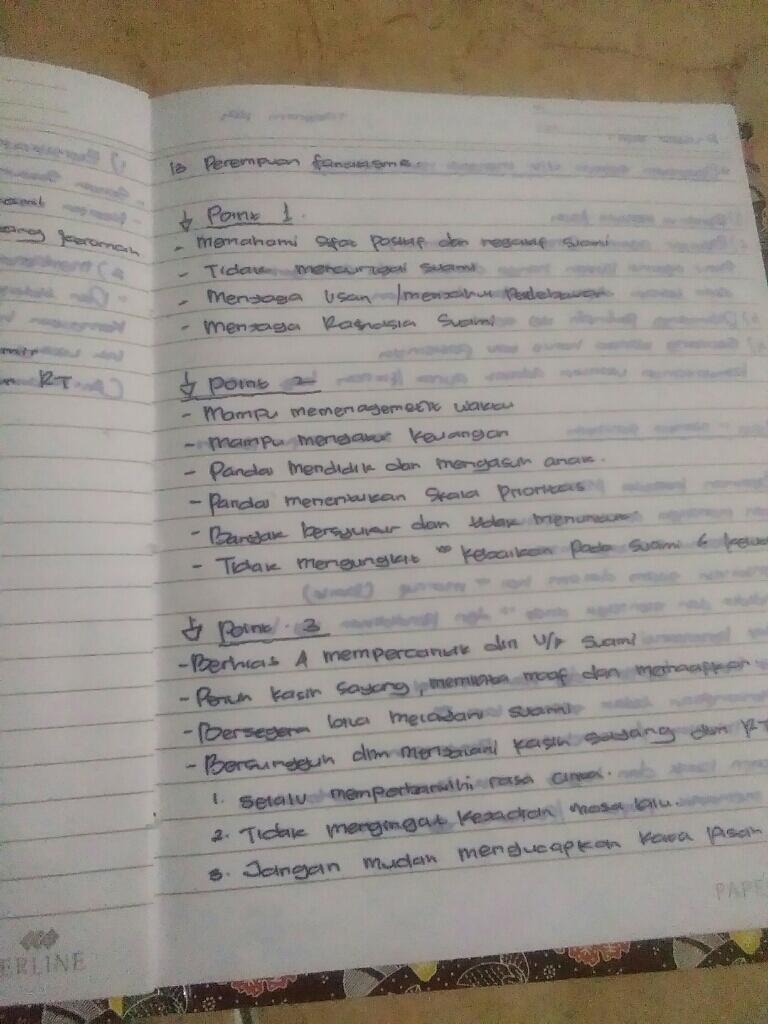 13 Perempuan fantastme
↓ Point 1.
- memahami sifat positif dan negatif suami
- Tidak mencurigai suami
- Menjaga lisan /menjahui Perdebatan
- Menjaga Rahasia Suami
↓ Point 2
- Mampu memenagemetik waktu
- mampu mengatur keuangan
- Pandai mendidik dan mengasuh anak.
- Pandai menentukan skala prioritas
- Banyak bersyukur dan tidak menuntut
- Tidak mengungkit" kebaikan pada suami &
↓ Point 3
- Berhias & mempercantik diri u/ suami
- Penuh kasih sayang, meminta maaf dan memaafkan
- Bersegera melayani suami
- Bersungguh dlm menjalani kasih sayang dlm RT
1. Selalu memperbaruhi rasa cinta.
2. Tidak mengingat kejadian masa lalu.
3. Jangan mudah mengucapkan kata pisah
RT
PAPE
ERLINE